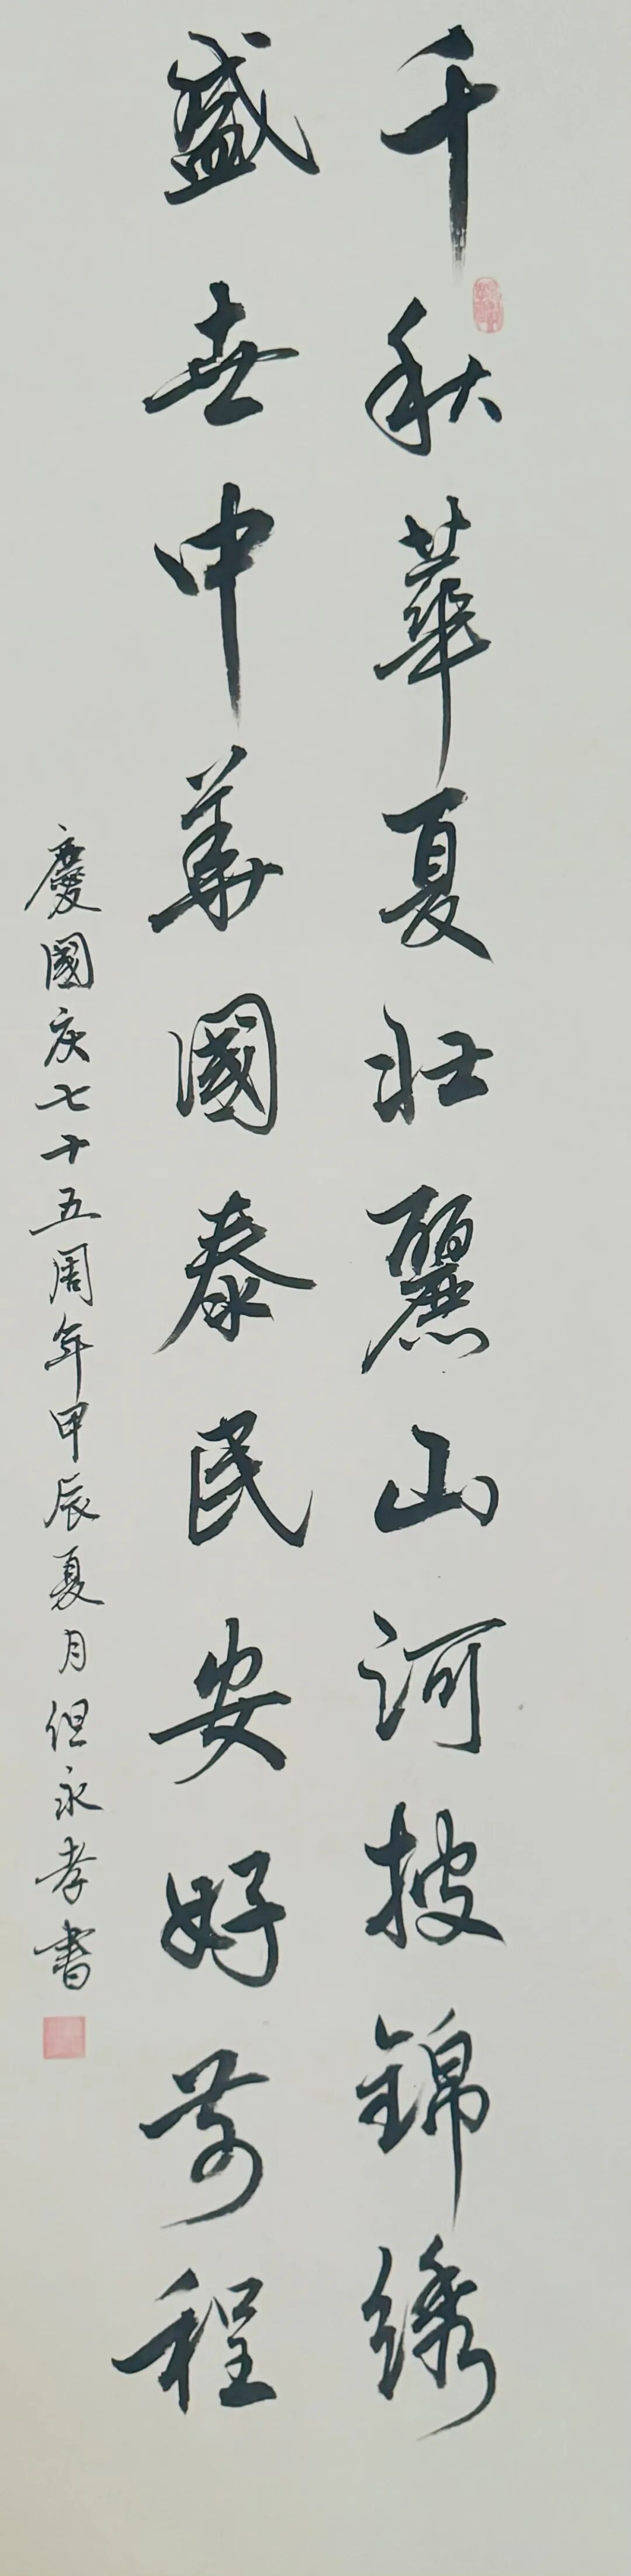 千秋華夏壮麗山河披錦绣
盛世中華國泰民安好前程
慶國庆七十五周年甲辰夏月但永孝書